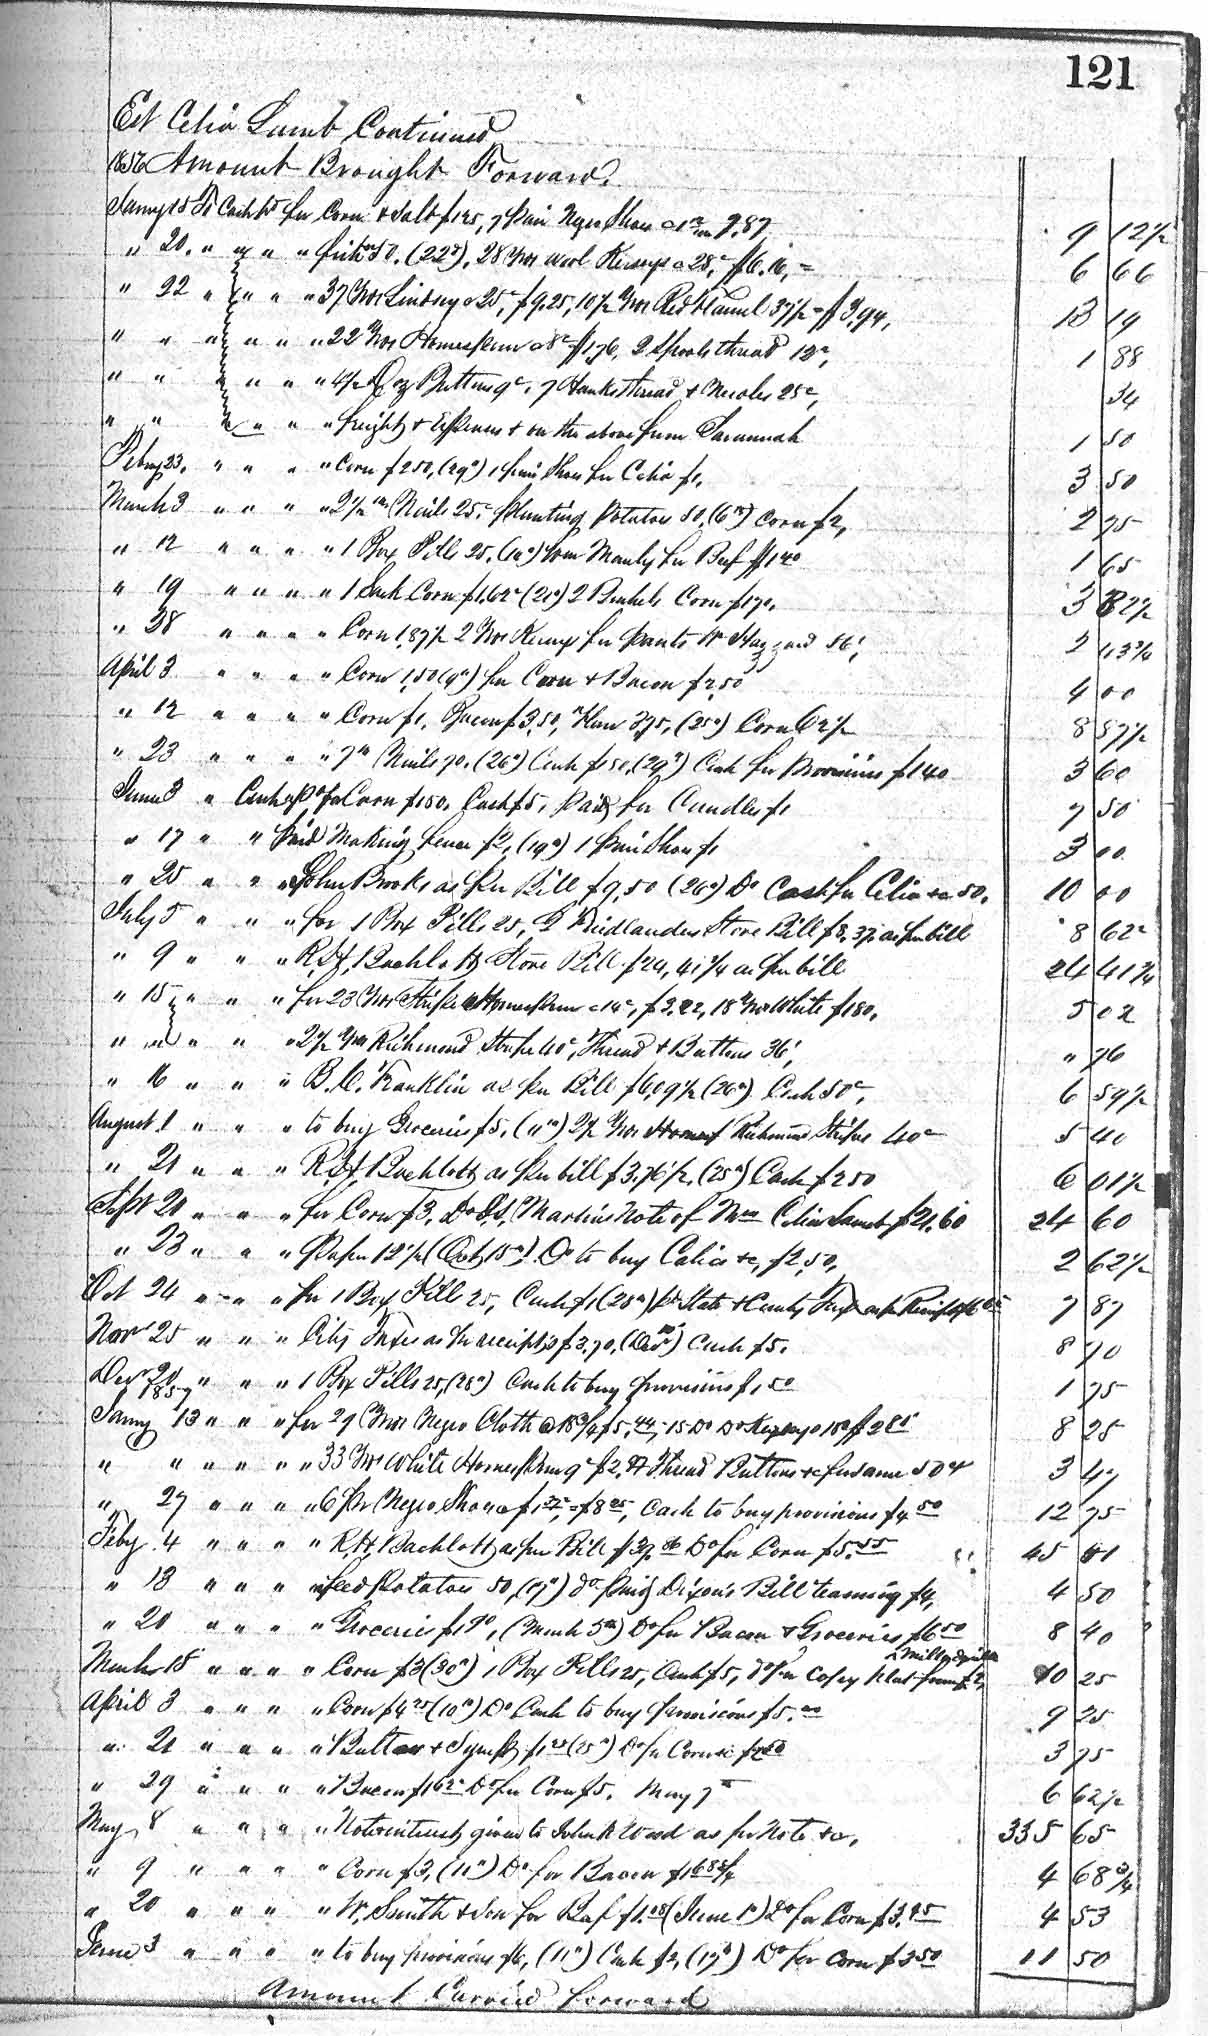 121
Est Celia Lamb Continued
1856 Amount Brought Forward.
Jany 15 To Cash pd for Corn & Salt $1.25, 7 pair Negro Shoes 7.87 9 12½
" 20. " " " " 50. (22d), 28 Yds wool Kerseys a 28c $6.16, = 6 66
" 22 " " " " 37 Yds Lindsey a 25c, $9.25, 10½ Yds Red Flannel 37½ = $3.94, 13 19
" " " " " " 22 Yds Homespun a 8c $1.76, 2 Spools thread 12c, 1 88
" " " " " " 4½ Doz Buttons 9c, 7 Hanks thread & Needles 25c, 34
" " " " " " freight & Expenses & on the above from Savannah 1 50
Feby 23. " " " " Corn $2.50, (29d) 1 pair Shoes for Celia $1. 3 50
March 3 " " " " 2½ lbs Nails 25c Planting Potatoes 50, (6th) Corn $2, 2 75
" 12 " " " " 1 Box Pills 25, Manly for Beef $1 40 1 65
" 19 " " " " 1 Sack Corn $1.62c (21d) 2 Bushels Corn $1 70. 3 32½
" 28 " " " " Corn 1.87½ 2 Yds Kerseys for pants 56, 2
April 3 " " " " Corn 1.50 (9th) for Corn & Bacon $2.50 4 00
" 12 " " " " Corn $1. Bacon $3.50, (25d) Corn 62½ 8 87½
" 23 " " " " 7 lb Nails 70. (26d) Cash $1 50. (29d) Cash for Provisions $1 40 3 60
June 3 " Cash pd for Corn $1 50. Cash $5, paid for Candles $1 7 50
" 17 " " paid Making fence $2, (19d) 1 pair Shoes $1 3 00
" 25 " " " John Brooks as per Bill $9.50 (26d) Do Cash for Celia &c 50. 10 00
July 5 " " " for 1 Box Pills 25, Friedlanders Store Bill $8.37 as per bill 8 62c
" 9 " " " R. D. Bachlott Store Bill $24, 41¾ as per bill 24 41¾
" 15 " " " for 23 Yds Stripe Homespun a 14c, $3.22, 18 Yds White $1 80. 5 02
" " " " " 2½ Yds Richmond Stripe 40c, Thread & Buttons 36, " 76
" 16 " " " B. C. Franklin as per Bill $6.09½ (26d) Cash 50c, 6 59½
August 1 " " " to buy Groceries $5. (11th) 2½ Yds Richmond Stripes 40c 5 40
" 21 " " " R. D. Bachlott as per bill $3.76½, (25d) Cash $2 50 6 01½
Sept 20 " " " for Corn $3. Do Martins Note of Mrs Celia Lamb $21.60 24 60
" 23 " " " Paper 12½ (Oct 15th) Do to buy Calico &c, $2.50, 2 62½
Oct 24 " " " for 1 Box Pills 25, Cash $1 (28th) pd State & County Tax as per Receipt 7 87
Novr 25 " " " City Taxes as per receipts $3.70, Cash $5. 8 70
Decr 20 " " " 1 Box Pills 25, (28th) Cash to buy provisions $1 50 1 75
1857
Jany 13 " " " for 29 Yds Negro Cloth @ 18¾ $5.44, 15 Do Do 8 25
" " " " " " 33 Yds White Homespun 9c Thread Buttons &c for same 50c 3 47
" 27 " " " " 6 pr Negro Shoes $8 25, Cash to buy provisions $4 50 12 75
Feby 4 " " " " R. D. Bachlott as per Bill Do for Corn $5.55 45 61
" 18 " " " " Seed Potatoes 50, (17th) paid Dixons Bill teaming $4, 4 50
" 20 " " " " Groceries $1 90, (March 5th) Do for Bacon & Groceries $6 50 8 40
March 18 " " " " Corn $3 (30th) 1 Box Pills 25, Cash $5, Do for Copy Plat from Milledgeville $2, 10 25
April 3 " " " " Corn $4 25 (10th) Do Cash to buy provisions $5.00 9 25
" 21 " " " " Butter & Syrup $1 25 (25th) Do for Corn &c $2 50 3 75
" 29 " " " " Bacon $1 62c Do for Corn $5. May 7th 6 62½
May 8 " " " " Note interest given to John R Wood as per Note &c, 335 65
" 9 " " " " Corn $3, (11th) Do for Bacon $1 68¾ 4 68¾
" 20 " " " " W. Smith & Son for Beef $1.28 (June 1st) Do for Corn $3.25 4 53
June 3 " " " " to buy provisions $6, (11th) Cash $2, (17th) Do for Corn $3 50 11 50
Amount Carried forward